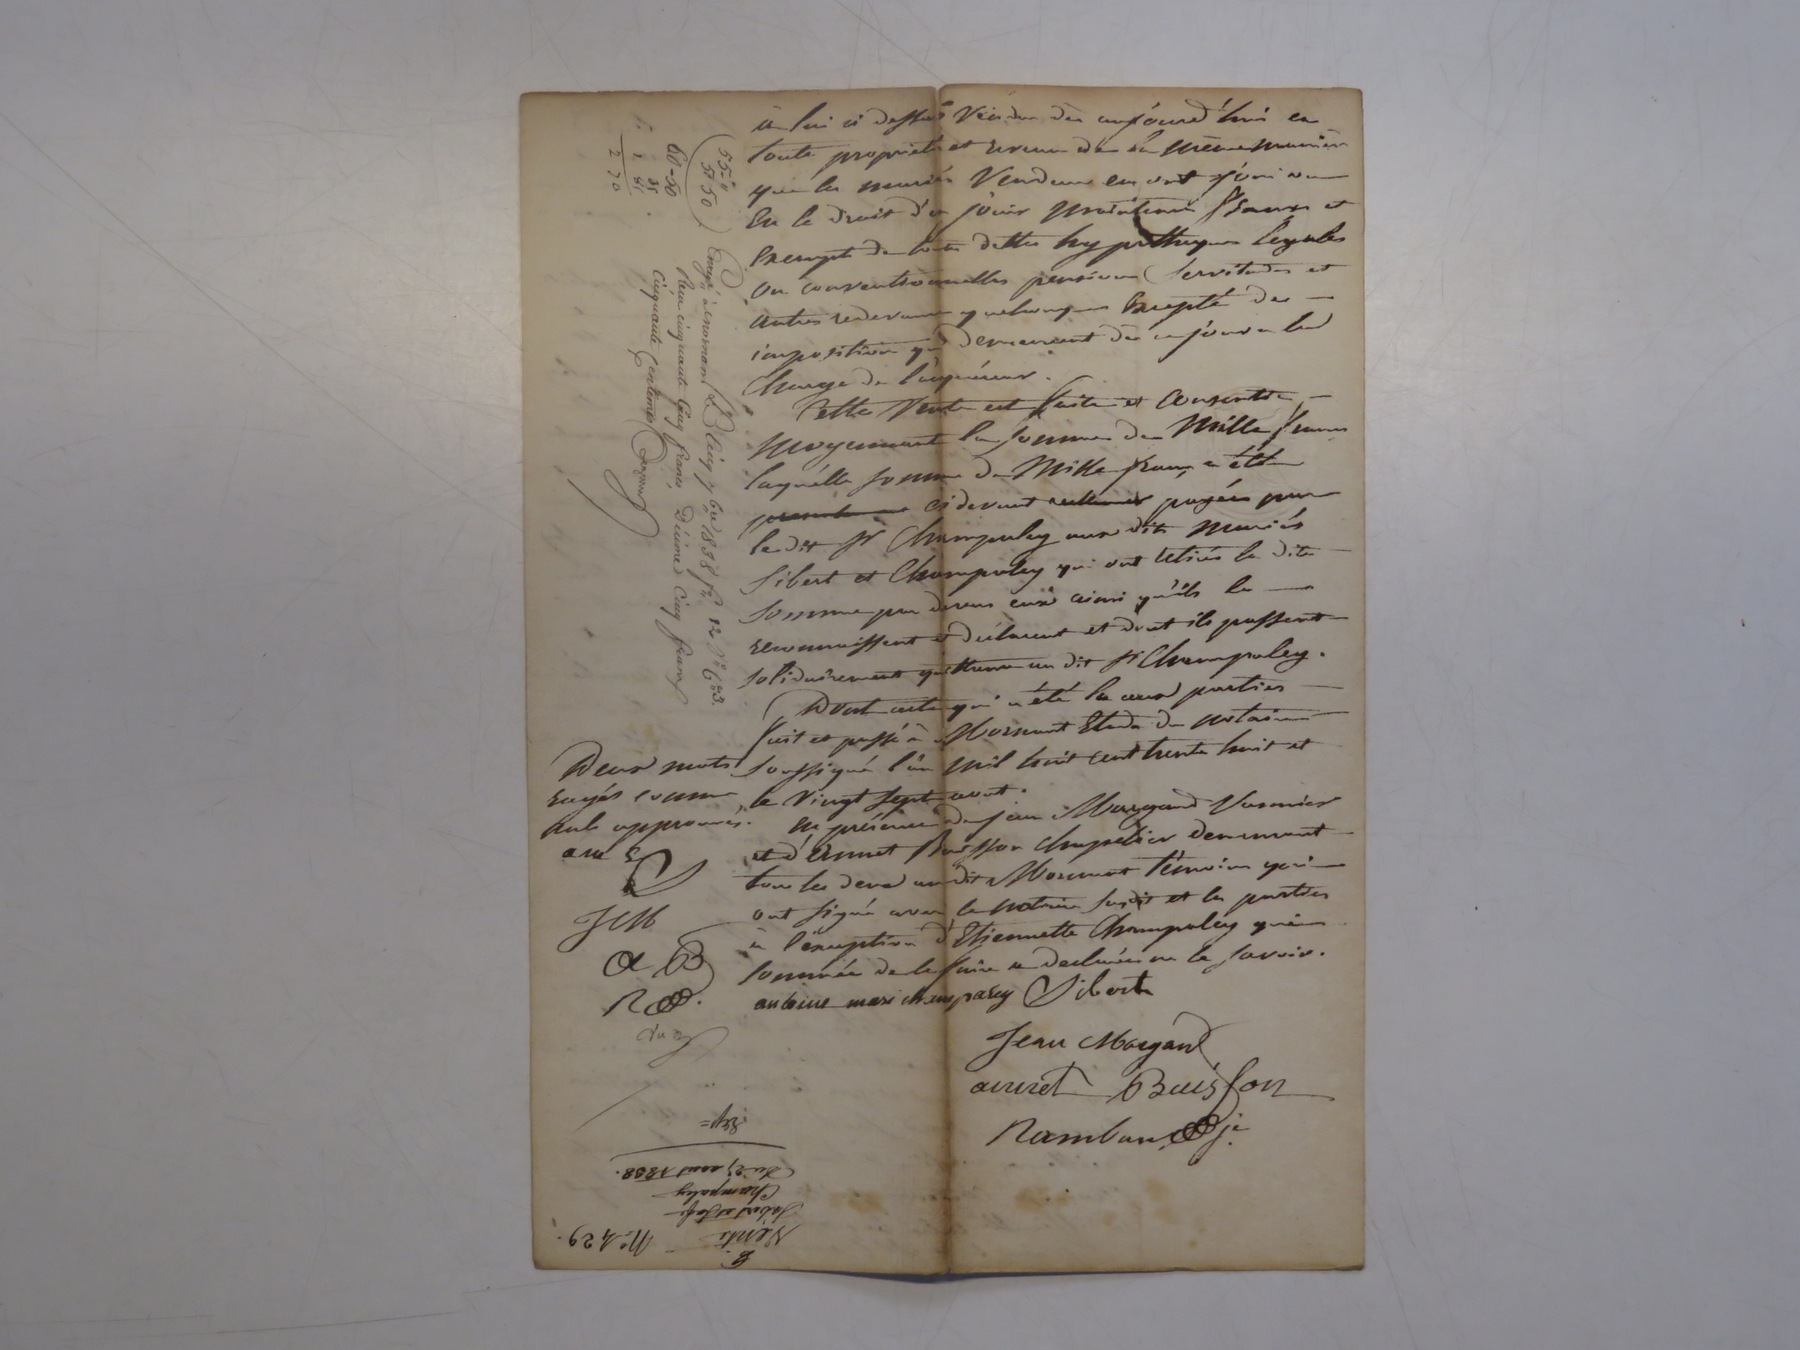 à lui ci dessus Vendu dès aujourd'hui en
toute propriété et revenu de la même manière
que les mariés Vendeurs en ont joui ou
Eu le droit d'en jouir maintenu francs et
Exempt de toutes dettes hypothèques legales
ou conventionnelles pensions Servitudes et
autres redevances quelconques Excepté des
imposition qui demeurent dès ce jour a la
Charge de l'acquéreur.
Cette Vente est faite et Consentie
moyennant la somme de Mille francs
laquelle somme de Mille francs a été
presentement ci devant réellement payée par
le dit Sr Champaley aux dits mariés
Sibert et Champaley qui ont retirés la dite
somme par devers eux ainsi qu'ils le
reconnaissent et déclarent et dont ils passent
solidairement quittance au dit Sr Champaley.
Dont acte qui a été lu aux parties
fait et passé à Mornant Etude du notaire
soussigné l'an mil huit cent trente huit et
le Vingt sept aout.
En présence de jean Margand
et d'Ennet Buisson chapelier demeurant
tous les deux au dit Mornant témoins qui
ont signé avec le notaire susdit et les parties
à l'exception d'Etiennette Champaley qui
sommée de le faire a declarée ne le savoir.
antoine mari champaley Sibert
Jean Margand
annet Buisson
Rambau
Deux mots
rayés comme
nuls approuvés.
am S
JM
a B
R
55 "
5 50
60-50
2 20
Enregé à mornant le cinq 7bre 1838 fo 12 No C 3.
Reçu cinquante Cinq francs, Décime Cinq francs
Cinquante Centimes
No 429.
Vente
Sibert et
Champaley
Du 27 aout 1838.
Exp=